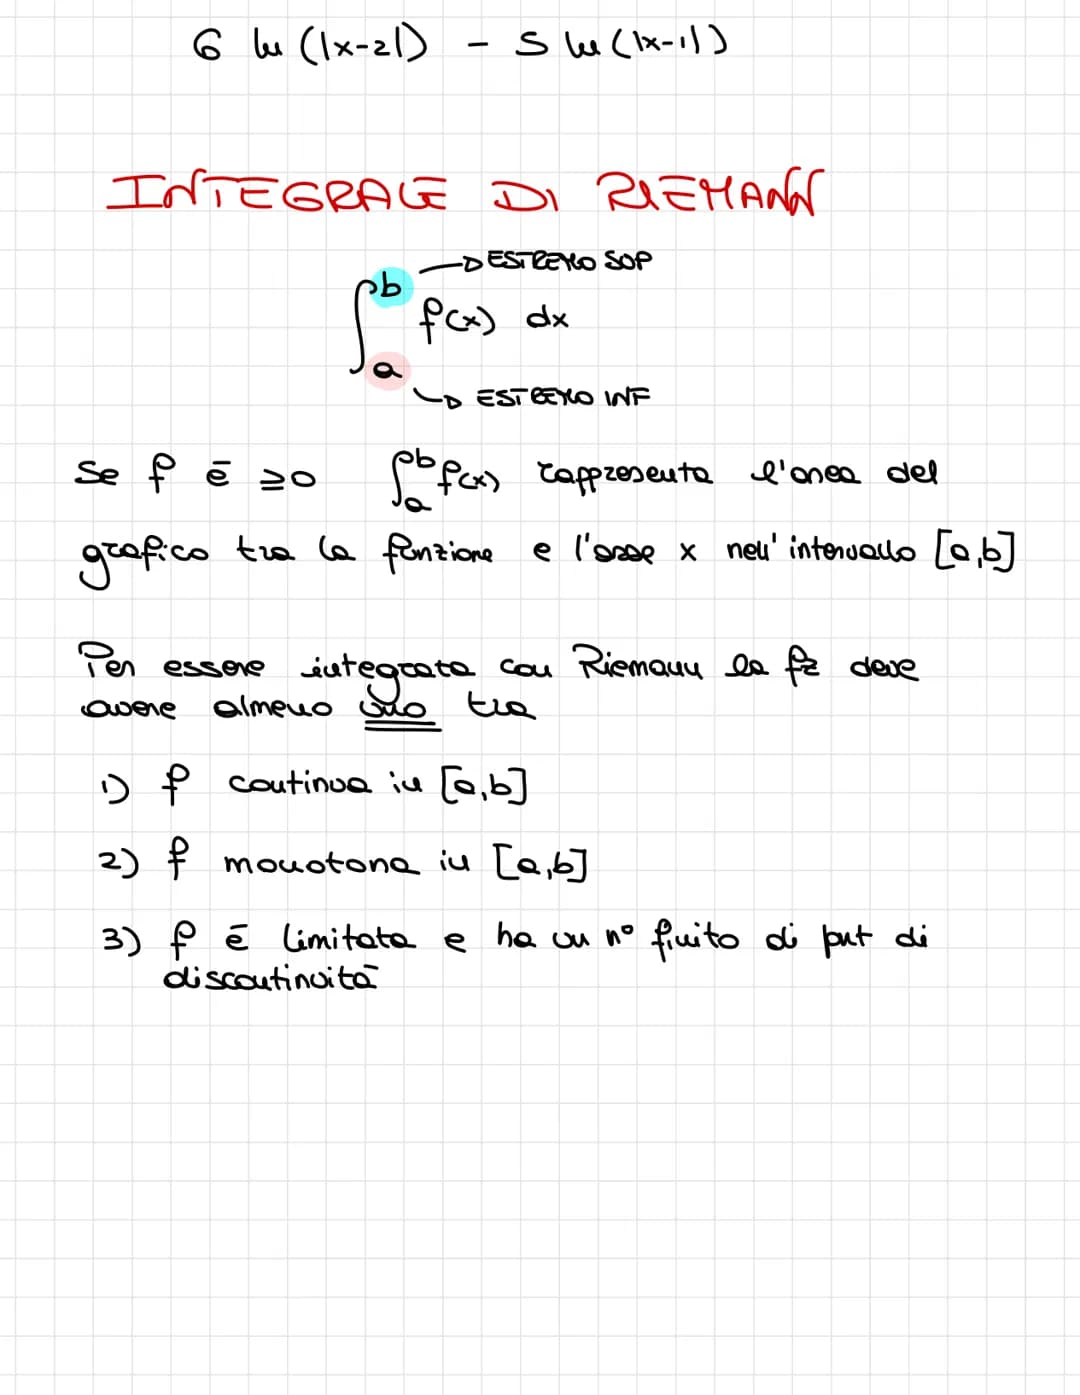 6 ln (|x-2|) - 5 ln (|x-1|)
INTEGRALE DI RIEMANN
ESTREMO SUP
∫ₐᵇ f(x) dx
ESTREMO INF
Se f ē ≥0 ∫ₐᵇ f(x) rappresenta l'area del
grafico tra la funzione e l'asse x nell' intervallo [a,b]
Per essere integrata con Riemann la fz deve
avere almeno uno tra
1) f continua in [a,b]
2) f monotona in [a,b]
3) f ē limitata e ha un n° finito di pnt di
discontinuitā